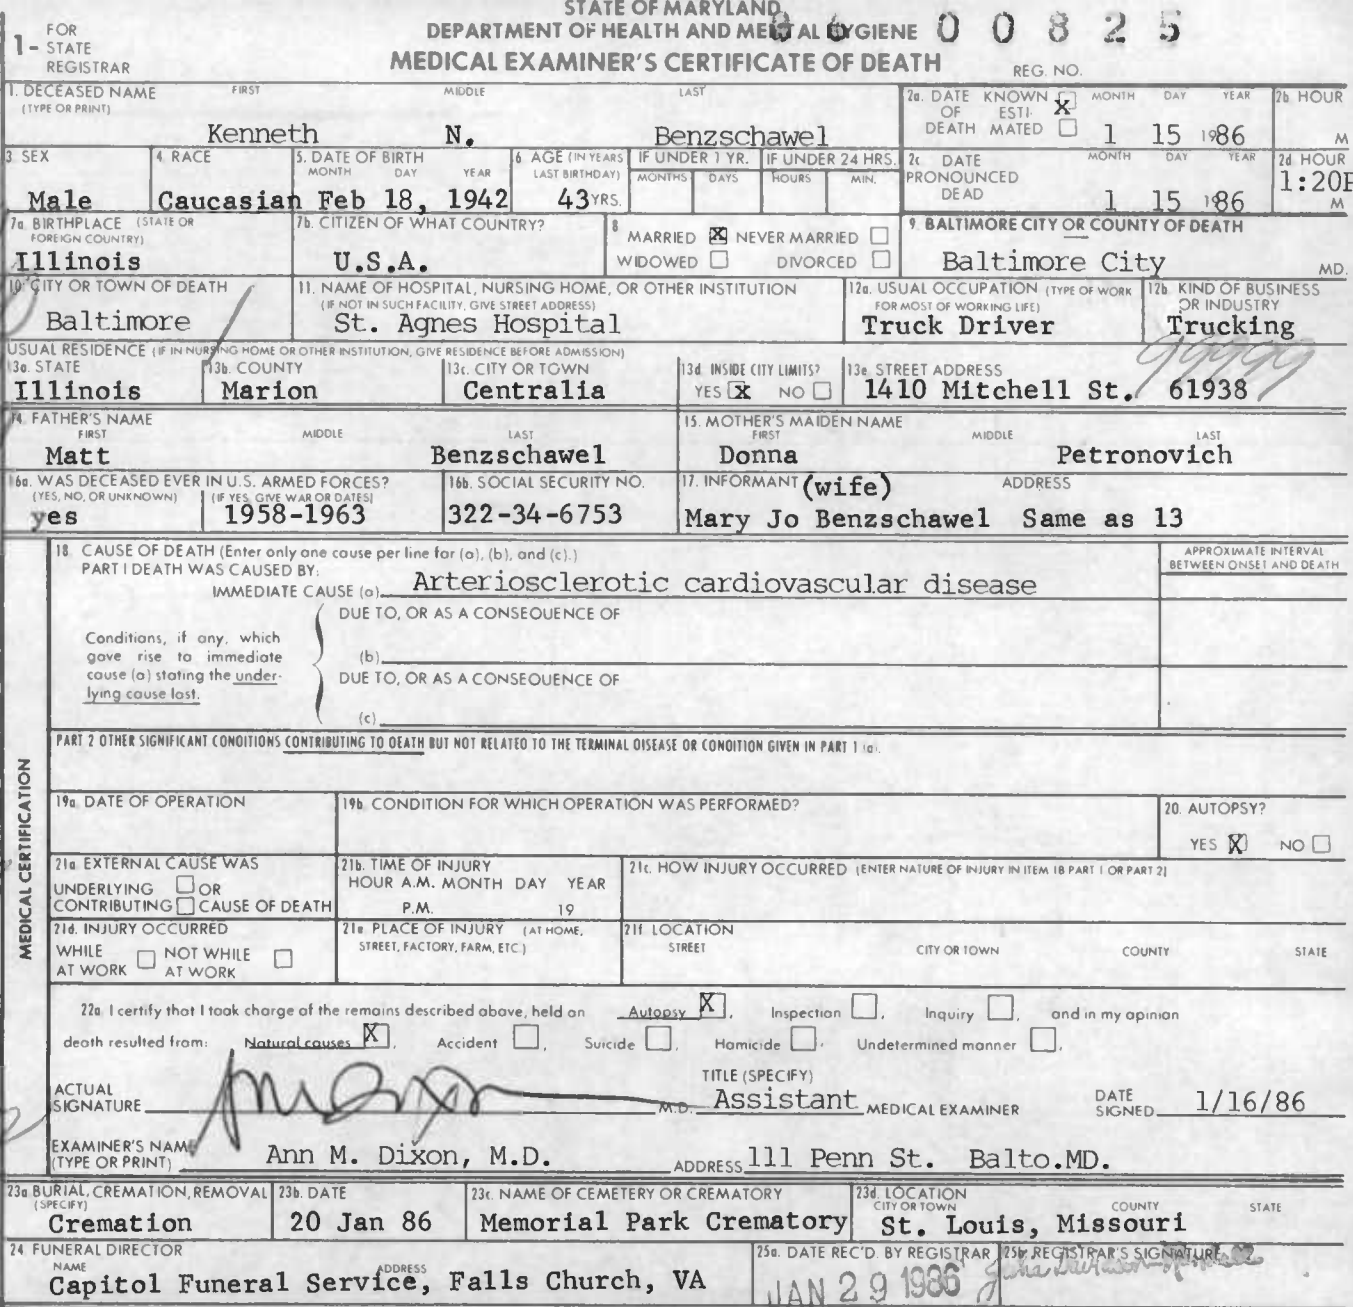 STATE OF MARYLAND
FOR
1- STATE
REGISTRAR
DEPARTMENT OF HEALTH AND MENTAL HYGIENE 00825
MEDICAL EXAMINER'S CERTIFICATE OF DEATH
REG. NO.
1. DECEASED NAME FIRST MIDDLE LAST
(TYPE OR PRINT)
Kenneth N. Benzschawel
2a. DATE KNOWN X MONTH DAY YEAR
OF ESTI-
DEATH MATED 1 15 1986
2b HOUR
M
3. SEX
Male
4. RACE
Caucasian
5. DATE OF BIRTH
MONTH DAY YEAR
Feb 18, 1942
6. AGE (IN YEARS
LAST BIRTHDAY)
43 YRS.
IF UNDER 1 YR.
MONTHS DAYS
IF UNDER 24 HRS.
HOURS MIN.
2c DATE MONTH DAY YEAR
PRONOUNCED
DEAD 1 15 1986
2d HOUR
1:20P
M
7a. BIRTHPLACE (STATE OR
FOREIGN COUNTRY)
Illinois
7b. CITIZEN OF WHAT COUNTRY?
U.S.A.
8 MARRIED X NEVER MARRIED
WIDOWED DIVORCED
9. BALTIMORE CITY OR COUNTY OF DEATH
Baltimore City MD.
10. CITY OR TOWN OF DEATH
Baltimore
11. NAME OF HOSPITAL, NURSING HOME, OR OTHER INSTITUTION
(IF NOT IN SUCH FACILITY, GIVE STREET ADDRESS)
St. Agnes Hospital
12a. USUAL OCCUPATION (TYPE OF WORK
FOR MOST OF WORKING LIFE)
Truck Driver
12b. KIND OF BUSINESS
OR INDUSTRY
Trucking
USUAL RESIDENCE (IF IN NURSING HOME OR OTHER INSTITUTION, GIVE RESIDENCE BEFORE ADMISSION)
13a. STATE
Illinois
13b. COUNTY
Marion
13c. CITY OR TOWN
Centralia
13d. INSIDE CITY LIMITS?
YES X NO
13e. STREET ADDRESS
1410 Mitchell St. 61938
99999
14. FATHER'S NAME
FIRST MIDDLE LAST
Matt Benzschawel
15. MOTHER'S MAIDEN NAME
FIRST MIDDLE LAST
Donna Petronovich
16a. WAS DECEASED EVER IN U.S. ARMED FORCES?
(YES, NO, OR UNKNOWN) (IF YES, GIVE WAR OR DATES)
yes 1958-1963
16b. SOCIAL SECURITY NO.
322-34-6753
17. INFORMANT (wife) ADDRESS
Mary Jo Benzschawel Same as 13
MEDICAL CERTIFICATION
18. CAUSE OF DEATH (Enter only one cause per line for (a), (b), and (c).)
PART I DEATH WAS CAUSED BY:
APPROXIMATE INTERVAL
BETWEEN ONSET AND DEATH
IMMEDIATE CAUSE (a) Arteriosclerotic cardiovascular disease
DUE TO, OR AS A CONSEQUENCE OF
Conditions, if any, which
gave rise to immediate
cause (a) stating the under-
lying cause last.
(b)
DUE TO, OR AS A CONSEQUENCE OF
(c)
PART 2 OTHER SIGNIFICANT CONDITIONS CONTRIBUTING TO DEATH BUT NOT RELATED TO THE TERMINAL DISEASE OR CONDITION GIVEN IN PART 1 (a).
19a. DATE OF OPERATION
19b. CONDITION FOR WHICH OPERATION WAS PERFORMED?
20. AUTOPSY?
YES X NO
21a. EXTERNAL CAUSE WAS
UNDERLYING OR
CONTRIBUTING CAUSE OF DEATH
21b. TIME OF INJURY
HOUR A.M. MONTH DAY YEAR
P.M. 19
21c. HOW INJURY OCCURRED (ENTER NATURE OF INJURY IN ITEM 18 PART 1 OR PART 2)
21d. INJURY OCCURRED
WHILE NOT WHILE
AT WORK AT WORK
21e PLACE OF INJURY (AT HOME,
STREET, FACTORY, FARM, ETC.)
21f LOCATION
STREET CITY OR TOWN COUNTY STATE
22a. I certify that I took charge of the remains described above, held an Autopsy X, Inspection, Inquiry, and in my opinion
death resulted from: Natural causes X, Accident, Suicide, Homicide, Undetermined manner.
TITLE (SPECIFY)
ACTUAL
SIGNATURE M.D. Assistant MEDICAL EXAMINER
DATE
SIGNED 1/16/86
EXAMINER'S NAME
(TYPE OR PRINT) Ann M. Dixon, M.D. ADDRESS 111 Penn St. Balto.MD.
23a BURIAL, CREMATION, REMOVAL
(SPECIFY)
Cremation
23b. DATE
20 Jan 86
23c. NAME OF CEMETERY OR CREMATORY
Memorial Park Crematory
23d. LOCATION
CITY OR TOWN COUNTY STATE
St. Louis, Missouri
24. FUNERAL DIRECTOR
NAME ADDRESS
Capitol Funeral Service, Falls Church, VA
25a. DATE REC'D. BY REGISTRAR
JAN 29 1986
25b. REGISTRAR'S SIGNATURE